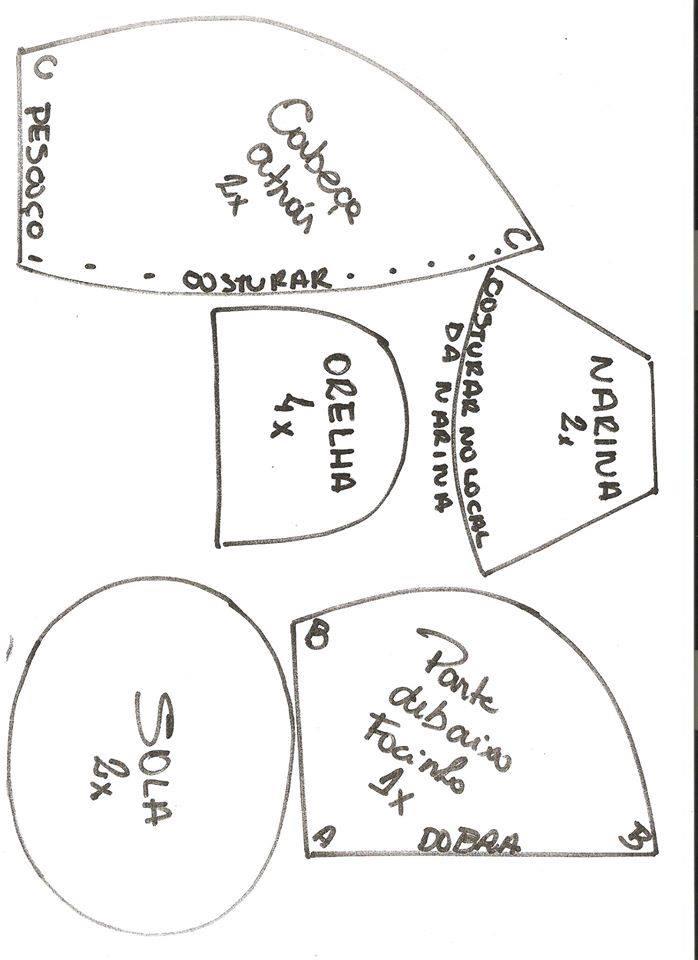 C
PESCOÇO
Cabeça
atrás
2x
C
COSTURAR
NARINA
2x
COSTURAR NO LOCAL
DA NARINA
ORELHA
4x
B
Parte
debaixo
Focinho
1x
A
DOBRA
B
SOLA
2x